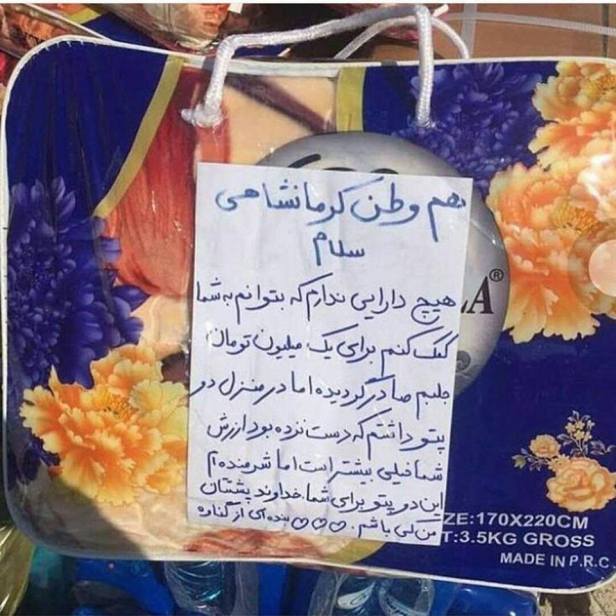 هم وطن کرمانشاهی
سلام
هیچ دارایی ندارم که بتوانم به شما
کمک کنم برای یک میلیون تومان
جلبم صادر گردیده اما در منزل دو
پتو داشتم که دست نزده بود ارزش
شما خیلی بیشتر است اما شرمنده ام
این دو پتو برای شما. خداوند پشتتان
من کی باشم. ♡♡♡♡ بنده ای از گناوه
LA®
ZE:170X220CM
T:3.5KG GROSS
MADE IN P.R.C.